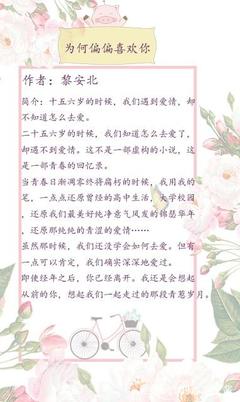 为何偏偏喜欢你
作者：黎安北
简介：十五六岁的时候，我们遇到爱情，却
不知道怎么去爱。
二十五六岁的时候，我们知道怎么去爱了，
却遇不到爱情。这不是一部虚构的小说，这
是一部青春的回忆录。
当青春日渐凋零终将腐朽的时候，我用我的
笔，一点点还原曾经的高中生活，大学校园
，还原我们最美好纯净意气风发的锦瑟华年
，还原那纯纯的青涩的爱情……
虽然那时候，我们还没学会如何去爱。但有
一点可以肯定，我们确实深深地爱过。
即使经年之后，你已经离开。我还是会想起
从前的你，想起我们一起走过的那段青葱岁月。